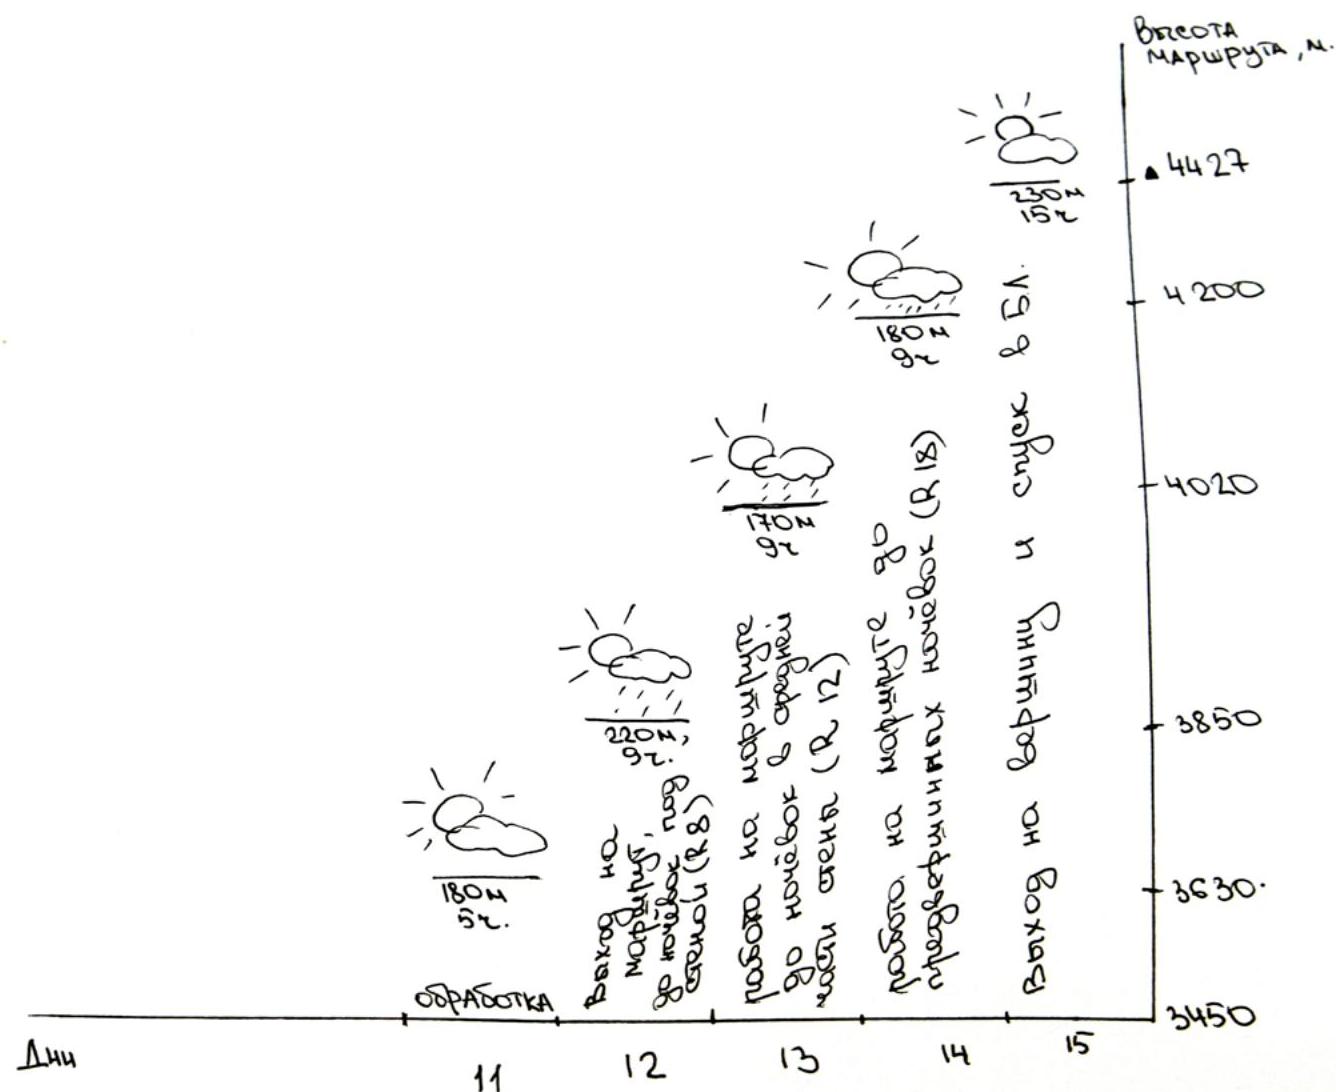 Высота
маршрута, м.
4427
4200
4020
3850
3630.
3450
230м
15ч
180м
9ч
170м
9ч
220м,
9ч.
180м
5ч.
обработка
Выход на
маршрут,
до ночёвок под
стеной (R8)
работа на маршруте
до ночёвок в средней
части стены (R 12)
работа на маршруте до
предвершинных ночёвок (R 18)
Выход на вершину и спуск в Б.Л.
Дни
11
12
13
14
15